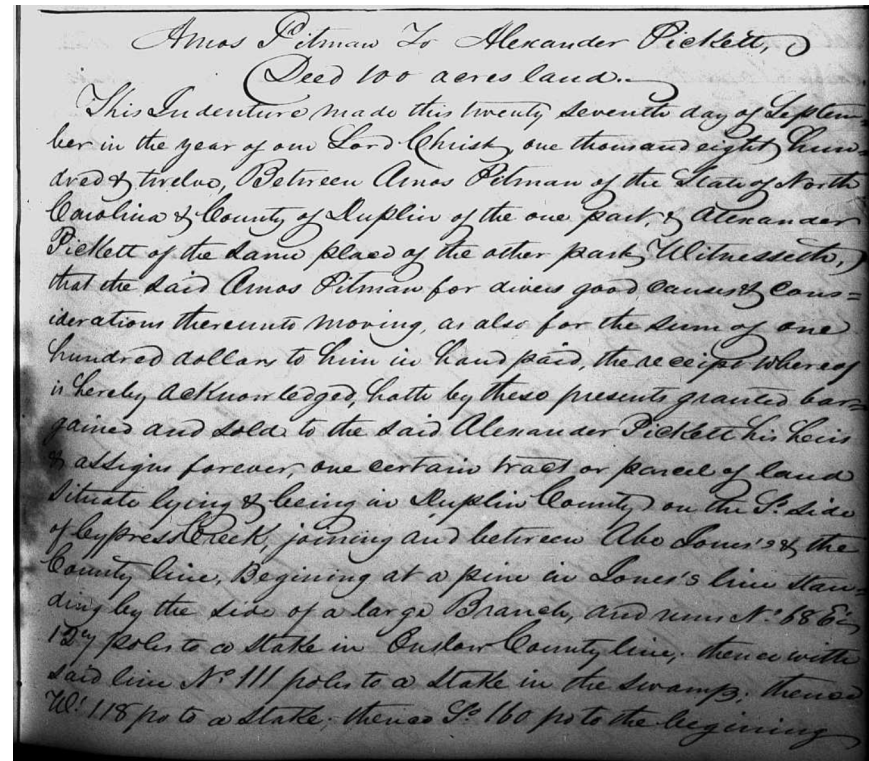 Amos Pitman To Alexander Pickett,
Deed 100 acres land.
This Indenture made this twenty seventh day of Septem=
ber in the year of our Lord Christ one thousand eight hun=
dred & twelve, Between Amos Pitman of the State of North
Carolina & County of Duplin of the one part, & Alexander
Pickett of the same place of the other part, Witnesseth,
that the said Amos Pitman for divers good causes & cons=
iderations thereunto moving, as also for the sum of one
hundred dollars to him in hand paid, the receipt whereof
is hereby acknowledged, hath by these presents granted bar=
gained and sold to the said Alexander Pickett his heirs
& assigns forever, one certain tract or parcel of land
situate lying & being in Duplin County on the So. side
of Cypress Creek, joining and between Abe Jones's & the
County line, Begining at a pine in Jones's line stan=
ding by the side of a large Branch, and runs No. 68 Et.
poles to a stake in Onslow County line, thence with
said line No. 111 poles to a stake in the swamp, thence
Wt. 118 po to a stake, thence So. 160 po to the begining